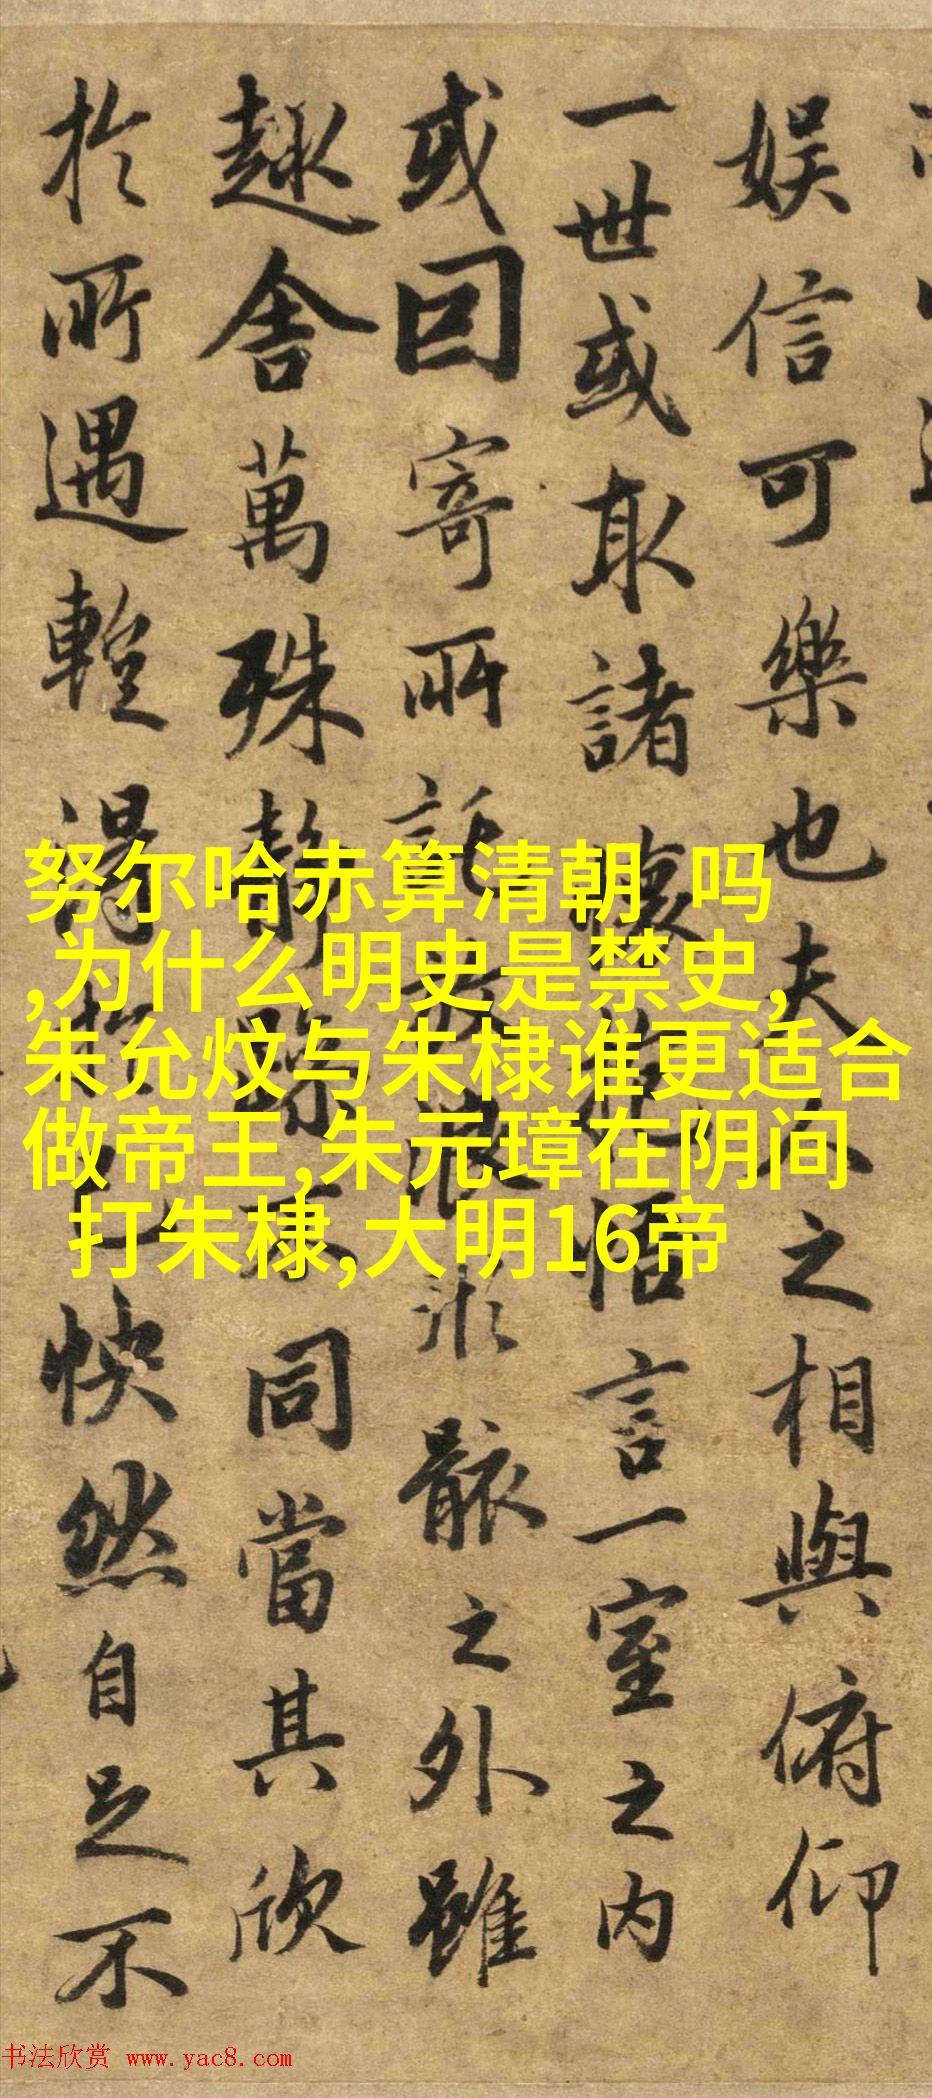 娱信可樂也夫人之相與俯仰
一世或取諸懷抱悟言一室之内
或因寄所託放浪形骸之外雖
趣舍萬殊静躁不同當其欣
於所遇暫得於己快然自足不
努尔哈赤算清朝 吗
,为什么明史是禁史,
朱允炆与朱棣谁更适合
做帝王,朱元璋在阴间
打朱棣,大明16帝
书法欣赏 www.yac8.com